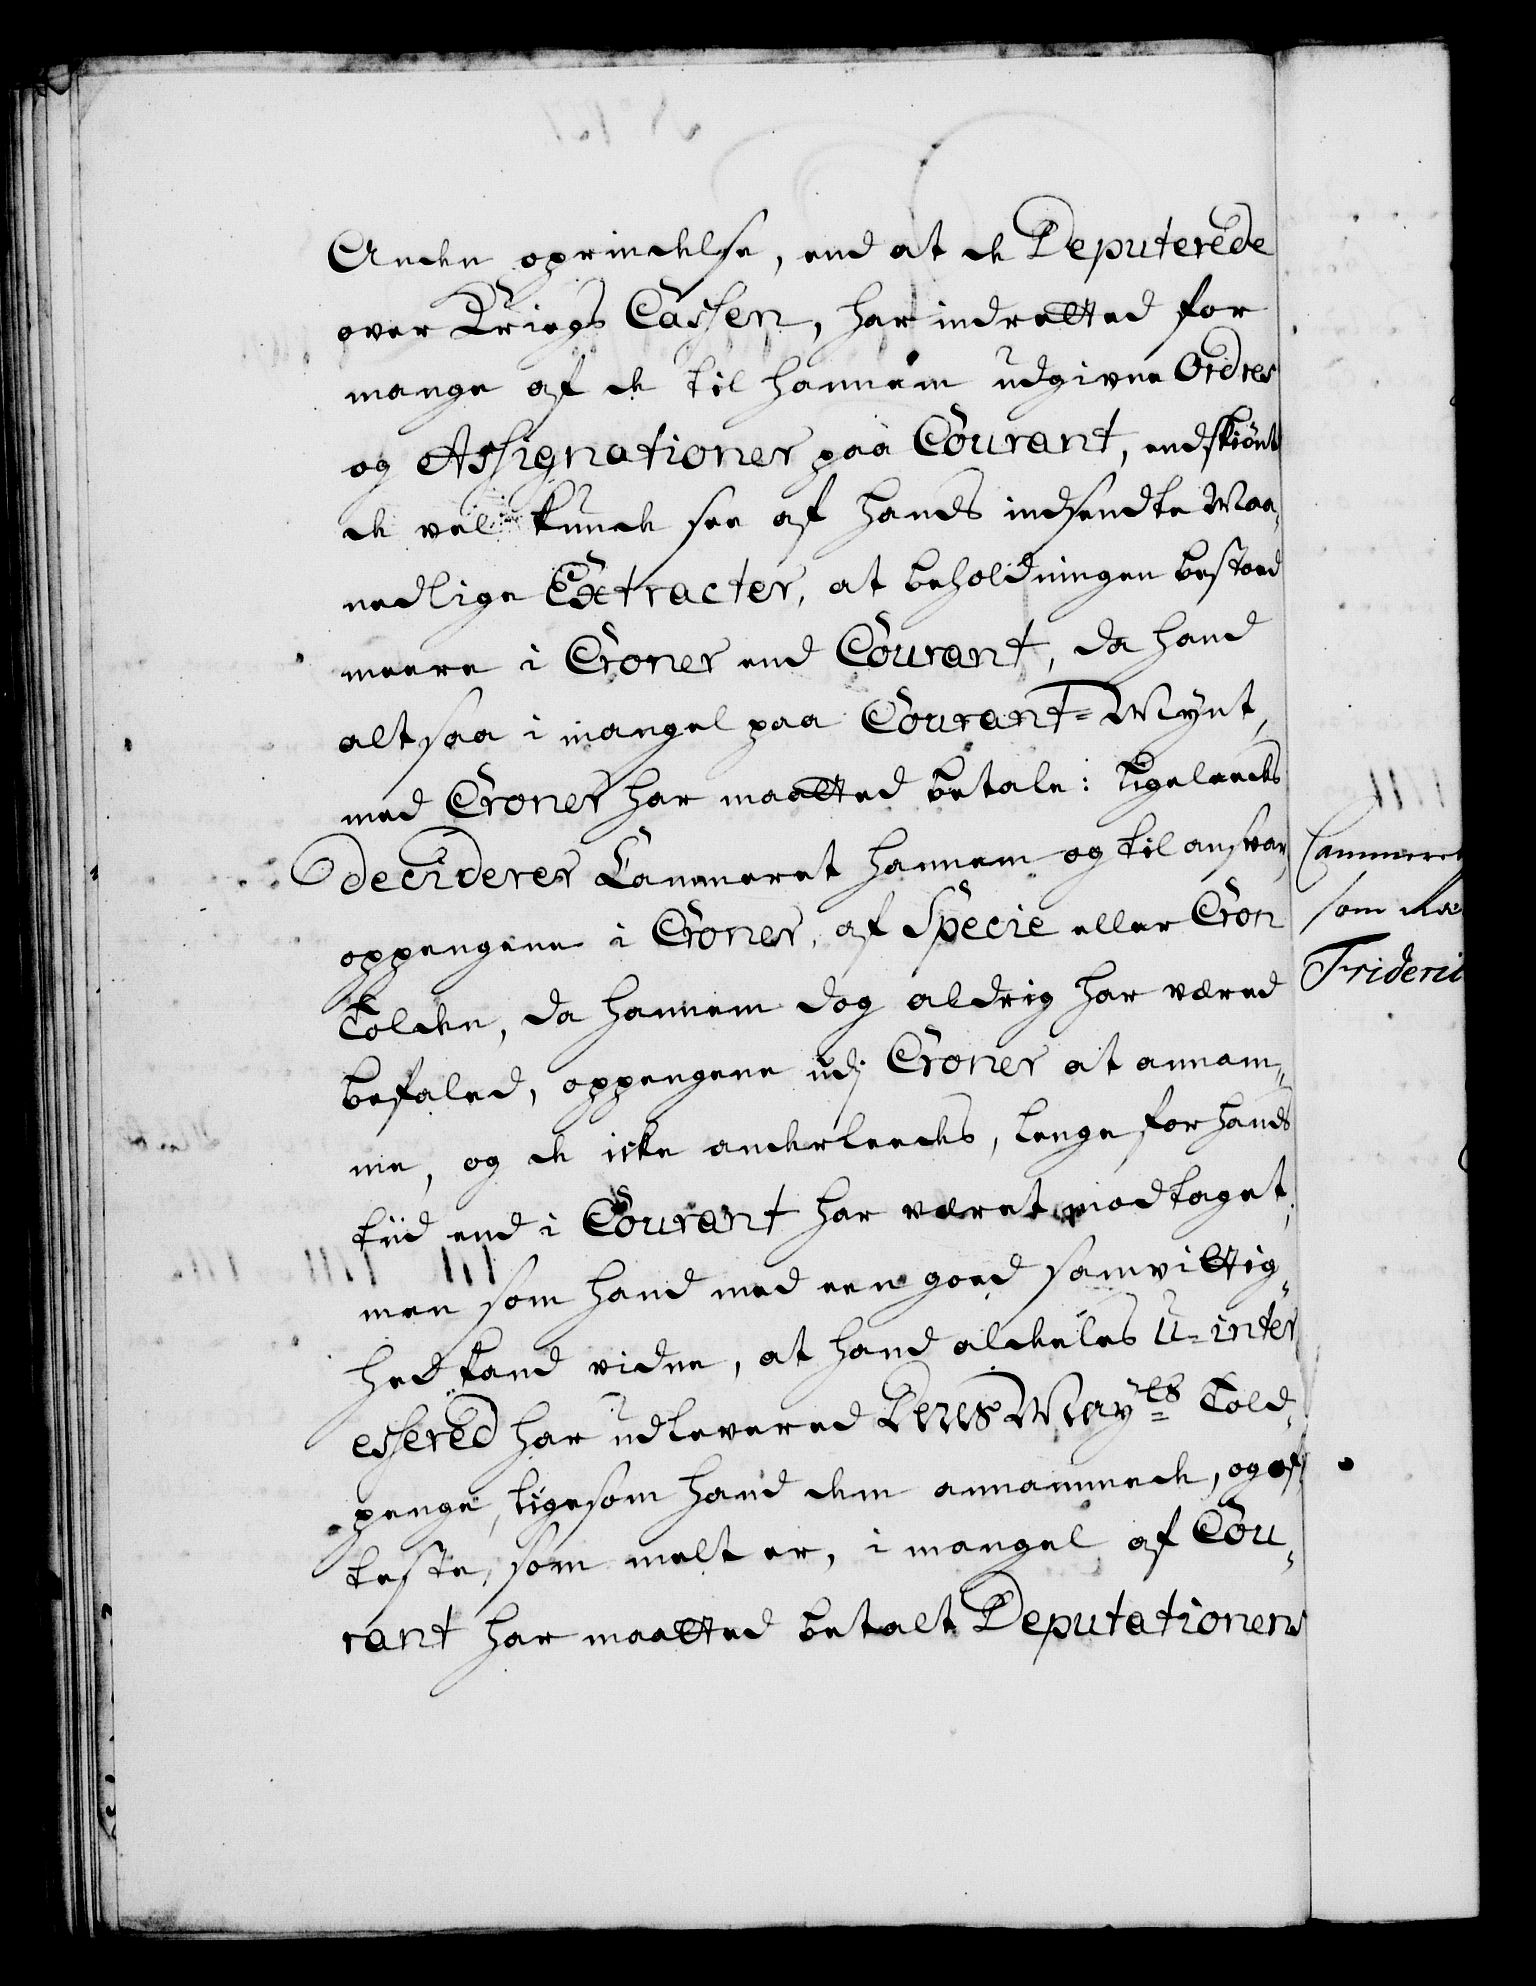 Anden oprindelse, end at de Deputerede
over Kriegs Cassen, har indretted for
mange af de til hannem udgivne Ordres
og Assignationer paa Courant, endskiönt
de vel kunde see af hands indsendte Maa„
nedlige Extracter, at beholdningen bestoed
meere i Croner end Courant, da hand
altsaa i mangel paa Courant-Mynt,
med Croner har maatted betale: Ligeleedes
decideres Cammeret hannem og til ansvar,
oppengene i Croner, af Specie eller Cron
Tolden, da hannem dog aldrig har væred
befaled, oppengene udj Croner at annam„
me, og de icke anderleedes, lenge for hands
tiid end i Courant har været modtaget;
men som hand med een goed samvittig„
hed kand vidne, at hand aldeeles U-inter
essered har udlevered Deris May:ts Told„
penge, ligesom hand dem annammede, og af
teste, som melt er, i mangel af Cou„
rant har maatted betalt Deputationens
Cammer
som
Frideric